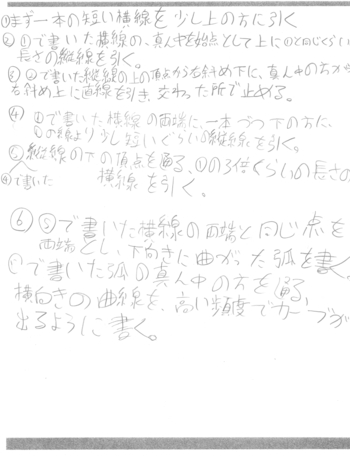 ①まず一本の短い横線を少し上の方に引く
② ①で書いた横線の、真ん中を始点として上に①と同じくらい
長さの縦線を引く。
③ ②で書いた縦線の上の頂点から右斜め下に、真ん中の方から
右斜め上に直線を引き、交わった所で止める。
④ ①で書いた横線の両端に、一本づつ下の方に、
①の線より少し短いぐらいの縦線を引く。
⑤ 縦線の下の頂点を通る、①の3倍くらいの長さの
④で書いた 横線を引く。
⑥ ⑤で書いた横線の両端と同じ点を
両端とし、下向きに曲がった弧を書く
で書いた弧の真ん中の方を通る、
横向きの曲線を、高い頻度でカーブが
出るように書く。